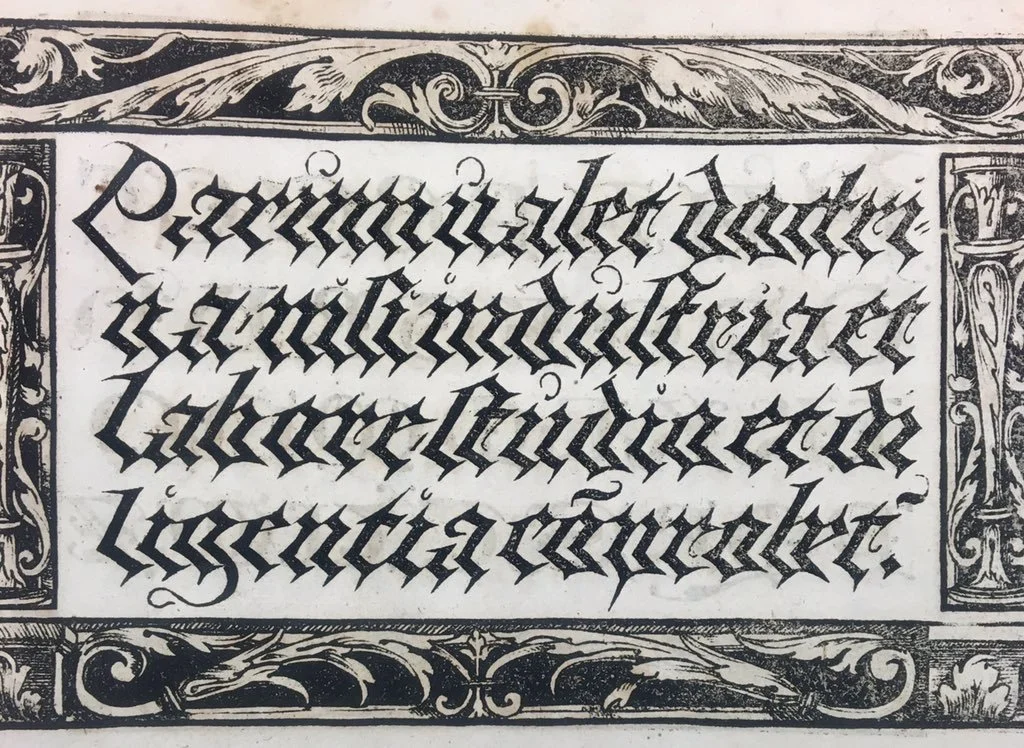 Parum ualet doctri
na niſi induſtria et
labore ſtudio et di
ligentia cõprobet̃.